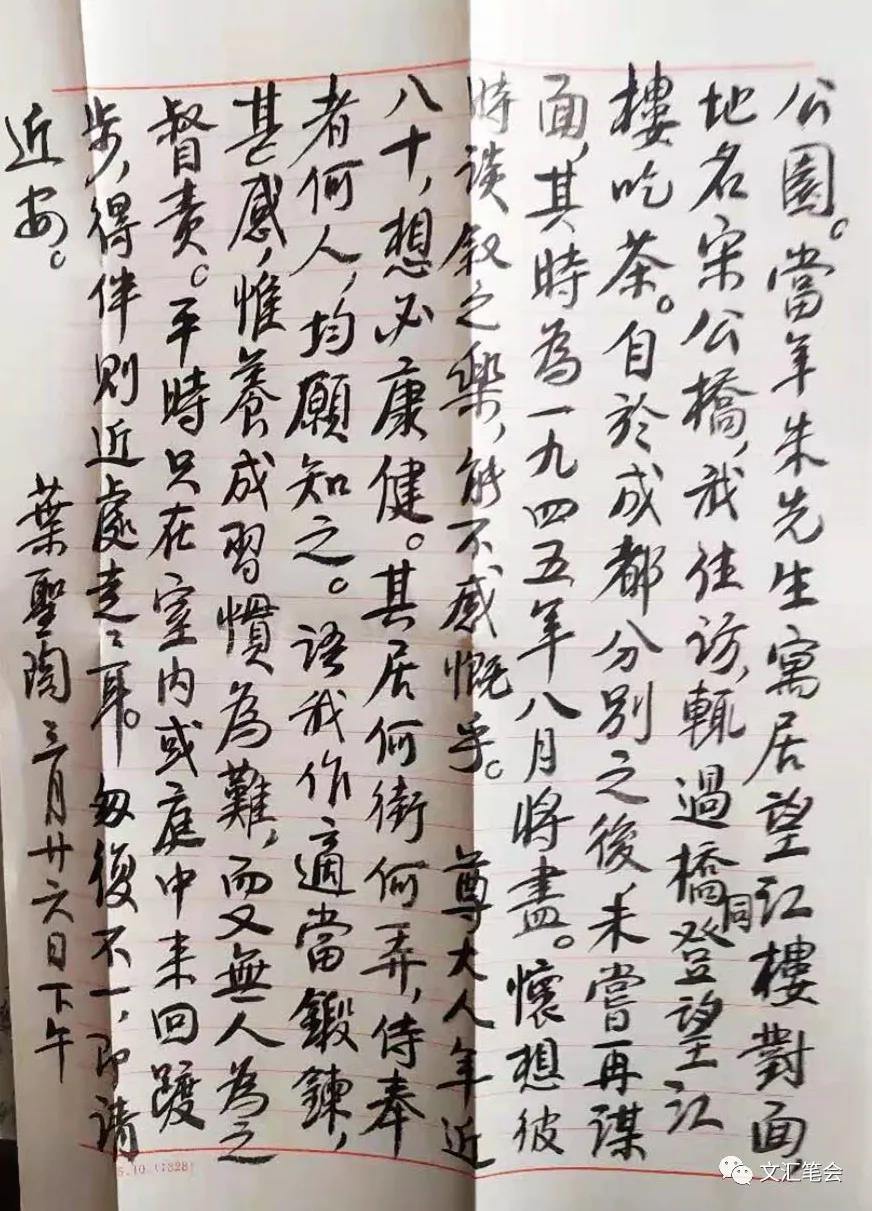 公園。當年朱先生寓居望江樓對面,
地名宋公橋,我往訪,輒過橋同登望江
樓吃茶。自於成都分别之後,未嘗再謀
面,其時為一九四五年八月將盡。懷想彼
時談叙之樂,能不感慨乎。 尊大人年近
八十,想必康健。其居何街何弄,侍奉
者何人,均願知之。語我作適當鍛鍊,
甚感,惟養成習慣為難,而又無人為之
督責。平時只在室内或庭中来回踱
步,得伴則近處走々耳。匆復不一,即請
近安。
葉聖陶 三月廿六日下午
5.10(1328)
文汇笔会